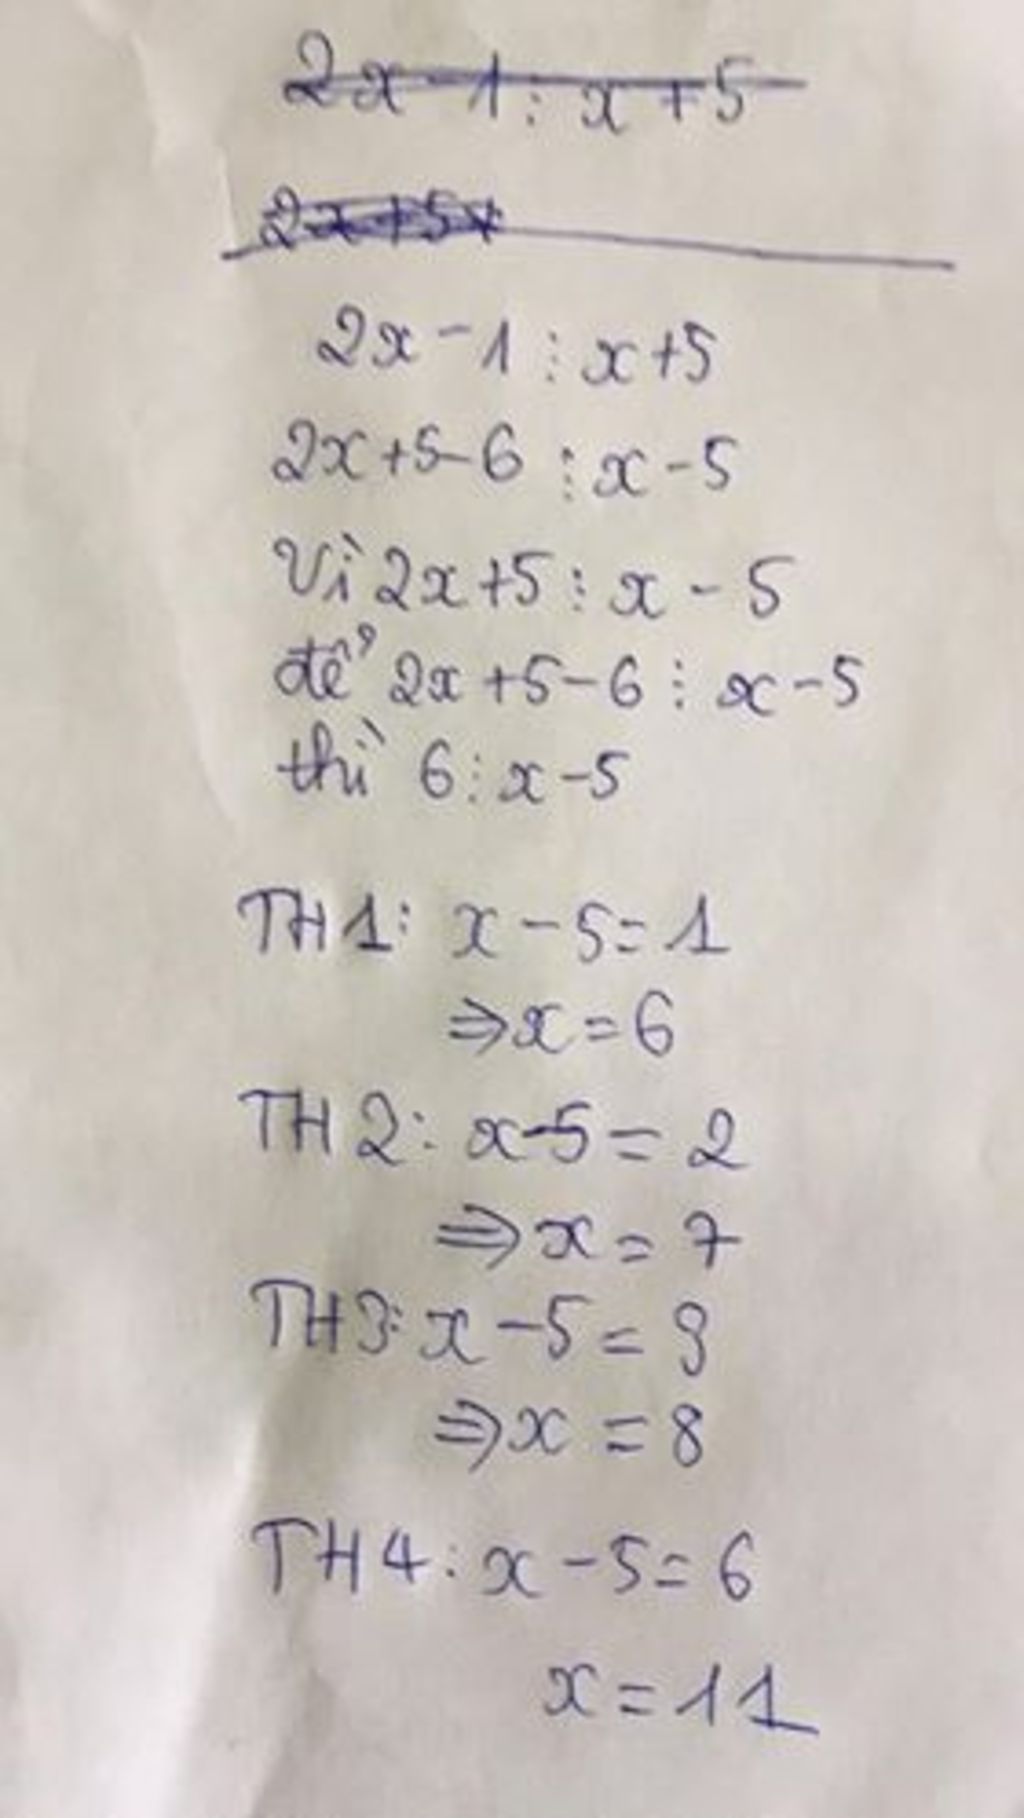 2x-1⋮x+5
2x+5x
2x-1⋮x+5
2x+5-6⋮x-5
Vì 2x+5⋮x-5
để 2x+5-6⋮x-5
thì 6⋮x-5
TH1: x-5=1
⇒x=6
TH2: x-5=2
⇒x=7
TH3: x-5=3
⇒x=8
TH4: x-5=6
x=11